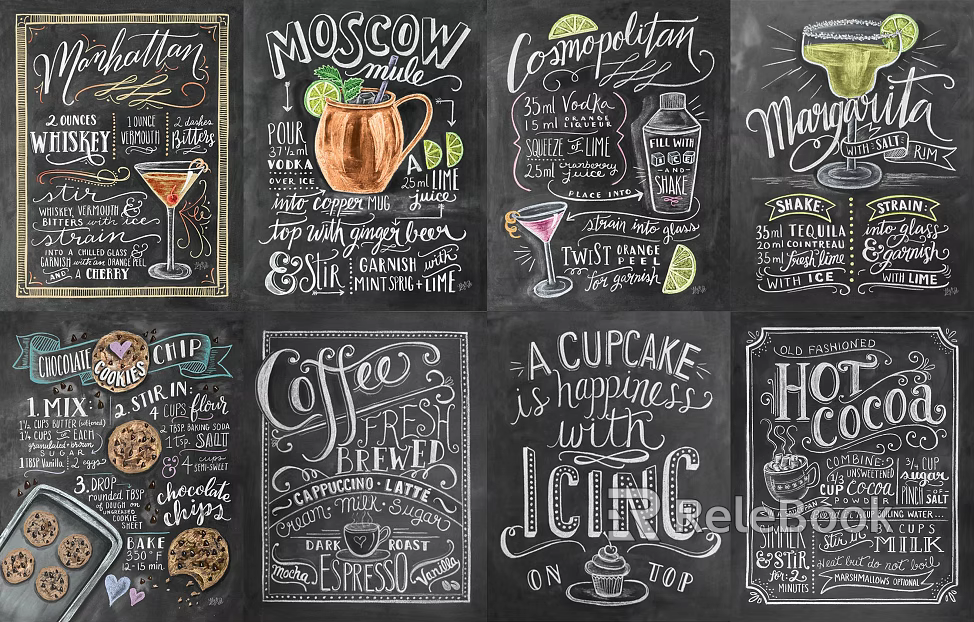 Manhattan
2 OUNCES
WHISKEY
1 OUNCE
VERMOUTH
2 dashes
Bitters
stir
WHISKEY, VERMOUTH &
BITTERS with ice
strain
INTO A CHILLED GLASS &
GARNISH with an ORANGE PEEL
AND A CHERRY
MOSCOW
mule
POUR
37 1/2 ml
VODKA
OVER ICE
A
25 ml LIME
juice
into copper MUG
top with ginger beer
& Stir
GARNISH with
MINT SPRIG + LIME
Cosmopolitan
35ml Vodka
15ml ORANGE
LIQUEUR
SQUEEZE OF LIME
25ml cranberry
juice
PLACE INTO
FILL WITH
ICE
AND
SHAKE
strain into glass
TWIST ORANGE
PEEL
for garnish
Margarita
WITH SALT
RIM
SHAKE:
35ml TEQUILA
20ml COINTREAU
35ml fresh lime
WITH ICE
STRAIN:
into glass
& garnish
WITH LIME
CHOCOLATE CHIP
COOKIES
1. MIX:
1 1/4 CUPS of EACH
granulated + brown
SUGAR
1 TBSP Vanilla 2 eggs
2. STIR IN:
4 CUPS flour
2 TBSP. BAKING SODA
1 tsp. SALT
& 4 cups
SEMI-SWEET
chocolate
chips
3. DROP
rounded TBSP
of DOUGH on
UNGREASED
COOKIE
SHEET
BAKE
350°F
12-15 min
Coffee
FRESH
BREWED
CAPPUCCINO · LATTE
Cream · Milk · Sugar
DARK ROAST
mocha ESPRESSO Vanilla
A CUPCAKE
is happiness
with
ICING
ON TOP
OLD FASHIONED
HOT
cocoa
COMBINE:
1/3 UNSWEETENED
CUP Cocoa
POWDER
3/4 CUP
sugar
PINCH of SALT
CUP BOILING WATER...
SIMMER
& STIR
for 2
MINUTES
Stir in
CUPS
MILK
Heat but do not boil
MARSHMALLOWS OPTIONAL
ReleBook